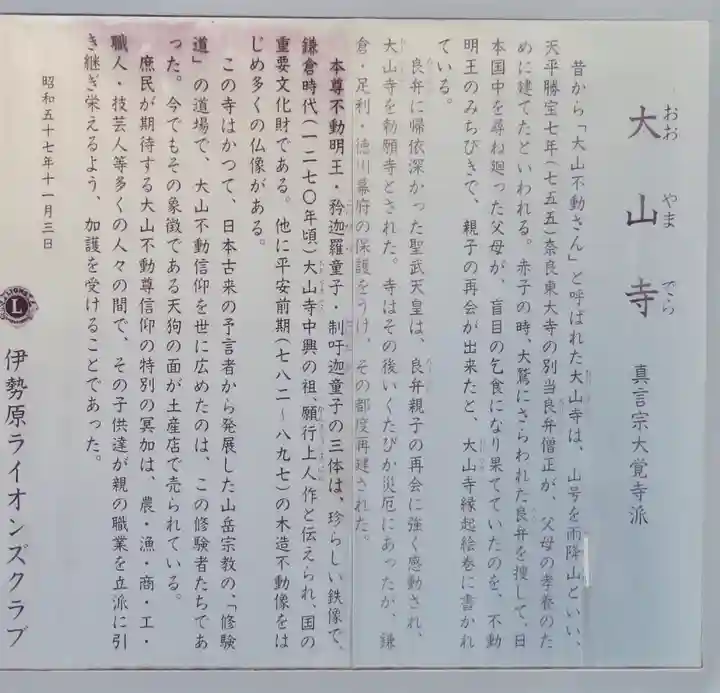 おおやまでら
大山寺 真言宗大覚寺派
昔から「大山不動さん」と呼ばれた大山寺は、山号を雨降山といい、
天平勝宝七年(七五五)奈良東大寺の別当良弁僧正が、父母の孝養のた
めに建てたといわれる。赤子の時、大鷲にさらわれた良弁を捜して、日
本国中を尋ね廻った父母が、盲目の乞食になり果てていたのを、不動
明王のみちびきで、親子の再会が出来たと、大山寺縁起絵巻に書かれ
ている。
良弁に帰依深かった聖武天皇は、良弁親子の再会に強く感動され、
大山寺を勅願寺とされた。寺はその後いくたびか災厄にあったが、鎌
倉・足利・徳川幕府の保護をうけ、その都度再建された。
本尊不動明王・矜迦羅童子・制吒迦童子の三体は、珍らしい鉄像で、
鎌倉時代(一二七〇年頃)大山寺中興の祖、願行上人作と伝えられ、国の
重要文化財である。他に平安前期(七八二~八九七)の木造不動像をは
じめ多くの仏像がある。
この寺はかつて、日本古来の予言者から発展した山岳宗教の、「修験
道」の道場で、大山不動信仰を世に広めたのは、この修験者たちであ
った。今でもその象徴である天狗の面が土産店で売られている。
庶民が期待する大山不動尊信仰の特別の冥加は、農・漁・商・工・
職人・技芸人等多くの人々の間で、その子供達が親の職業を立派に引
き継ぎ栄えるよう、加護を受けることであった。
昭和五十七年十一月三日
L
LIONS
伊勢原ライオンズクラブ